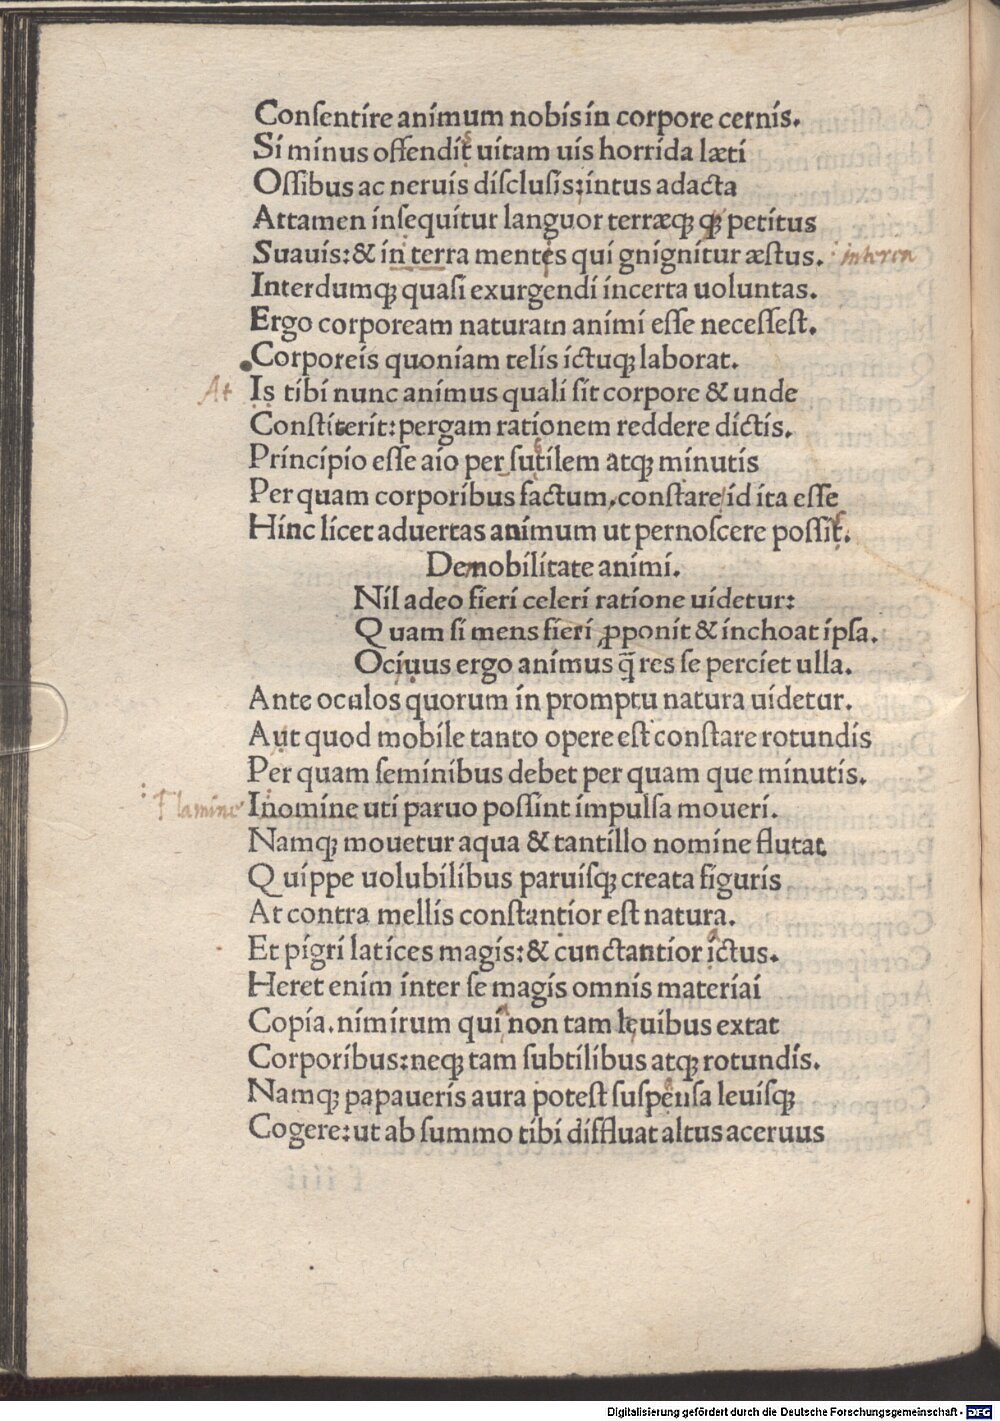 Conſentire animum nobis in corpore cernis.
Si minus offendit uitam uis horrida læti
Oſſibus ac neruis diſcluſis: intus adacta
Attamen inſequitur languor terræq; q; petitus
Suauis: & in terra mentes qui gnignitur æſtus. interea
Interdumq; quaſi exurgendi incerta uoluntas.
Ergo corpoream naturam animi eſſe neceſſeſt.
Corporeis quoniam telis ictuq; laborat.
At Is tibi nunc animus quali ſit corpore & unde
Conſtiterit: pergam rationem reddere dictis.
Principio eſſe aio per ſutilem atq; minutis
Per quam corporibus factum. conſtare id ita eſſe
Hinc licet aduertas animum ut pernoſcere poſſit.
De mobilitate animi.
Nil adeo fieri celeri ratione uidetur:
Quam ſi mens fieri ꝓponit & inchoat ipſa.
Ociuus ergo animus q̄ res ſe perciet ulla.
Ante oculos quorum in promptu natura uidetur.
Aut quod mobile tanto opere eſt conſtare rotundis
Per quam ſeminibus debet per quam que minutis.
: Flamine Inomine uti paruo poſſint impulſa moueri.
Namq; mouetur aqua & tantillo nomine flutat
Quippe uolubilibus paruiſq; creata figuris
At contra mellis conſtantior eſt natura.
Et pigri latices magis: & cunctantior ictus.
Heret enim inter ſe magis omnis materiai
Copia. nimirum qui non tam leuibus extat
Corporibus: neq; tam ſubtilibus atq; rotundis.
Namq; papaueris aura poteſt ſuſpenſa leuiſq;
Cogere: ut ab ſummo tibi diffluat altus aceruus
Digitalisierung gefördert durch die Deutsche Forschungsgemeinschaft - DFG